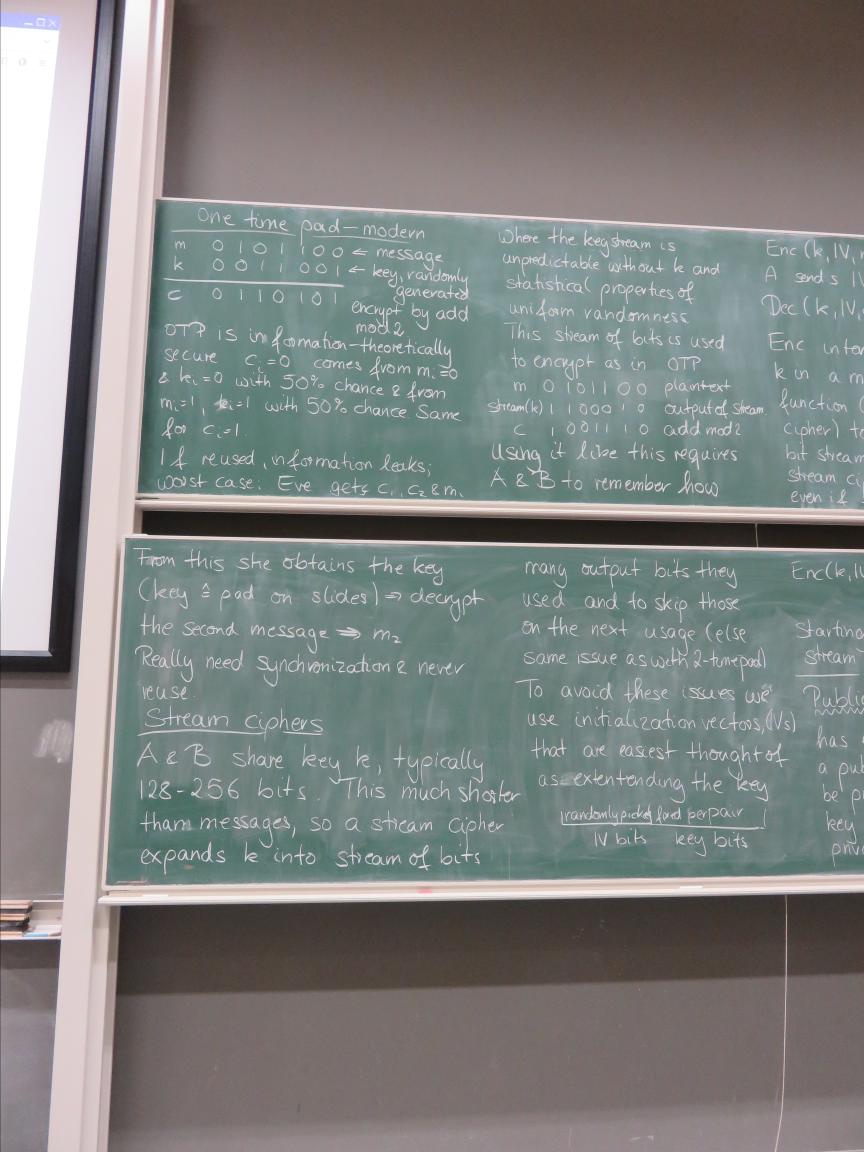 One time pad-modern
m 0 1 0 1 1 0 0 ← message
k 0 0 1 1 0 0 1 ← key, randomly
generated
c 0 1 1 0 1 0 1
encrypt by add
mod 2
OTP is information-theoretically
secure ci=0 comes from mi=0
& ki=0 with 50% chance & from
mi=1, ki=1 with 50% chance. Same
for ci=1.
If reused, information leaks;
worst case: Eve gets c1, c2 & m1
From this she obtains the key
(key ≙ pad on slides) ⇒ decrypt
the second message ⇒ m2
Really need synchronization & never
reuse.
Stream ciphers
A & B share key k, typically
128-256 bits. This much shorter
tham messages, so a stream cipher
expands k into stream of bits
Where the keystream is
unpredictable without k and
statistical properties of
uniform randomness
This stream of bits is used
to encrypt as in OTP
m 0 1 0 1 1 0 0 plaintext
stream(k) 1 1 0 0 0 1 0 output of stream
c 1 0 0 1 1 1 0 add mod 2
Using it like this requires
A & B to remember how
many output bits they
used and to skip those
on the next usage (else
same issue as with 2-time pad)
To avoid these issues we
use initialization vectors, (IVs)
that are easiest thought of
as extentending the key
randomly picked fixed per pair
IV bits key bits
Enc (k, IV,
A sends
Dec (k, IV,
Enc
k in a
function (
cipher) to
bit stream
stream
even if
Enc(k, IV
Starting
stream
Public
has
a
be
key